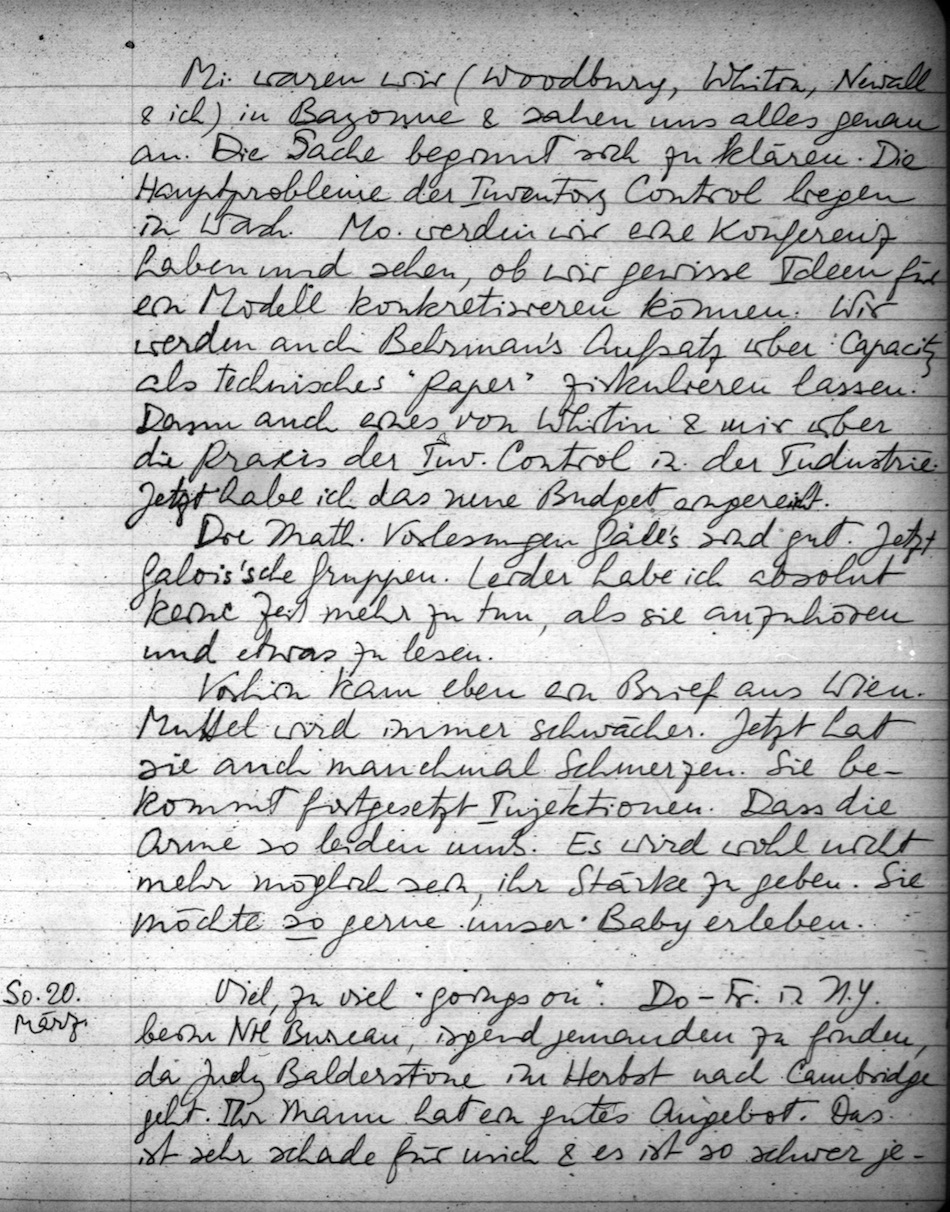 Mi. waren wir (Woodbury, Whitin, Newall
& ich) in Bayonne & sahen uns alles genau
an. Die Sache beginnt sich zu klären. Die
Hauptprobleme der Inventory Control liegen
in Wash. Mo. werden wir eine Konferenz
haben und sehen, ob wir gewisse Ideen für
ein Modell konkretisieren können. Wir
werden auch Behrman's Aufsatz über Capacity
als technisches "paper" zirkulieren lassen.
Dann auch eines von Whitin & mir über
die Praxis der Inv. Control in der Industrie.
Jetzt habe ich das neue Budget eingereicht.
Die Math. Vorlesungen Gale's sind gut. Jetzt
Galois'sche Gruppen. Leider habe ich absolut
keine Zeit mehr zu tun, als sie anzuhören
und etwas zu lesen.
Vorhin kam eben ein Brief aus Wien.
Muttel wird immer schwächer. Jetzt hat
sie auch manchmal Schmerzen. Sie be-
kommt fortgesetzt Injektionen. Dass die
Arme so leiden muss. Es wird wohl nicht
mehr möglich sein, ihr Stärke zu geben. Sie
möchte so gerne unser Baby erleben.
So. 20.
März.
Viel, zu viel "goings on". Do – Fr. in N.Y.
beim Bureau, irgend jemanden zu finden,
da Judy Balderstone im Herbst nach Cambridge
geht. Ihr Mann hat ein gutes Angebot. Das
ist sehr schade für mich & es ist so schwer je-